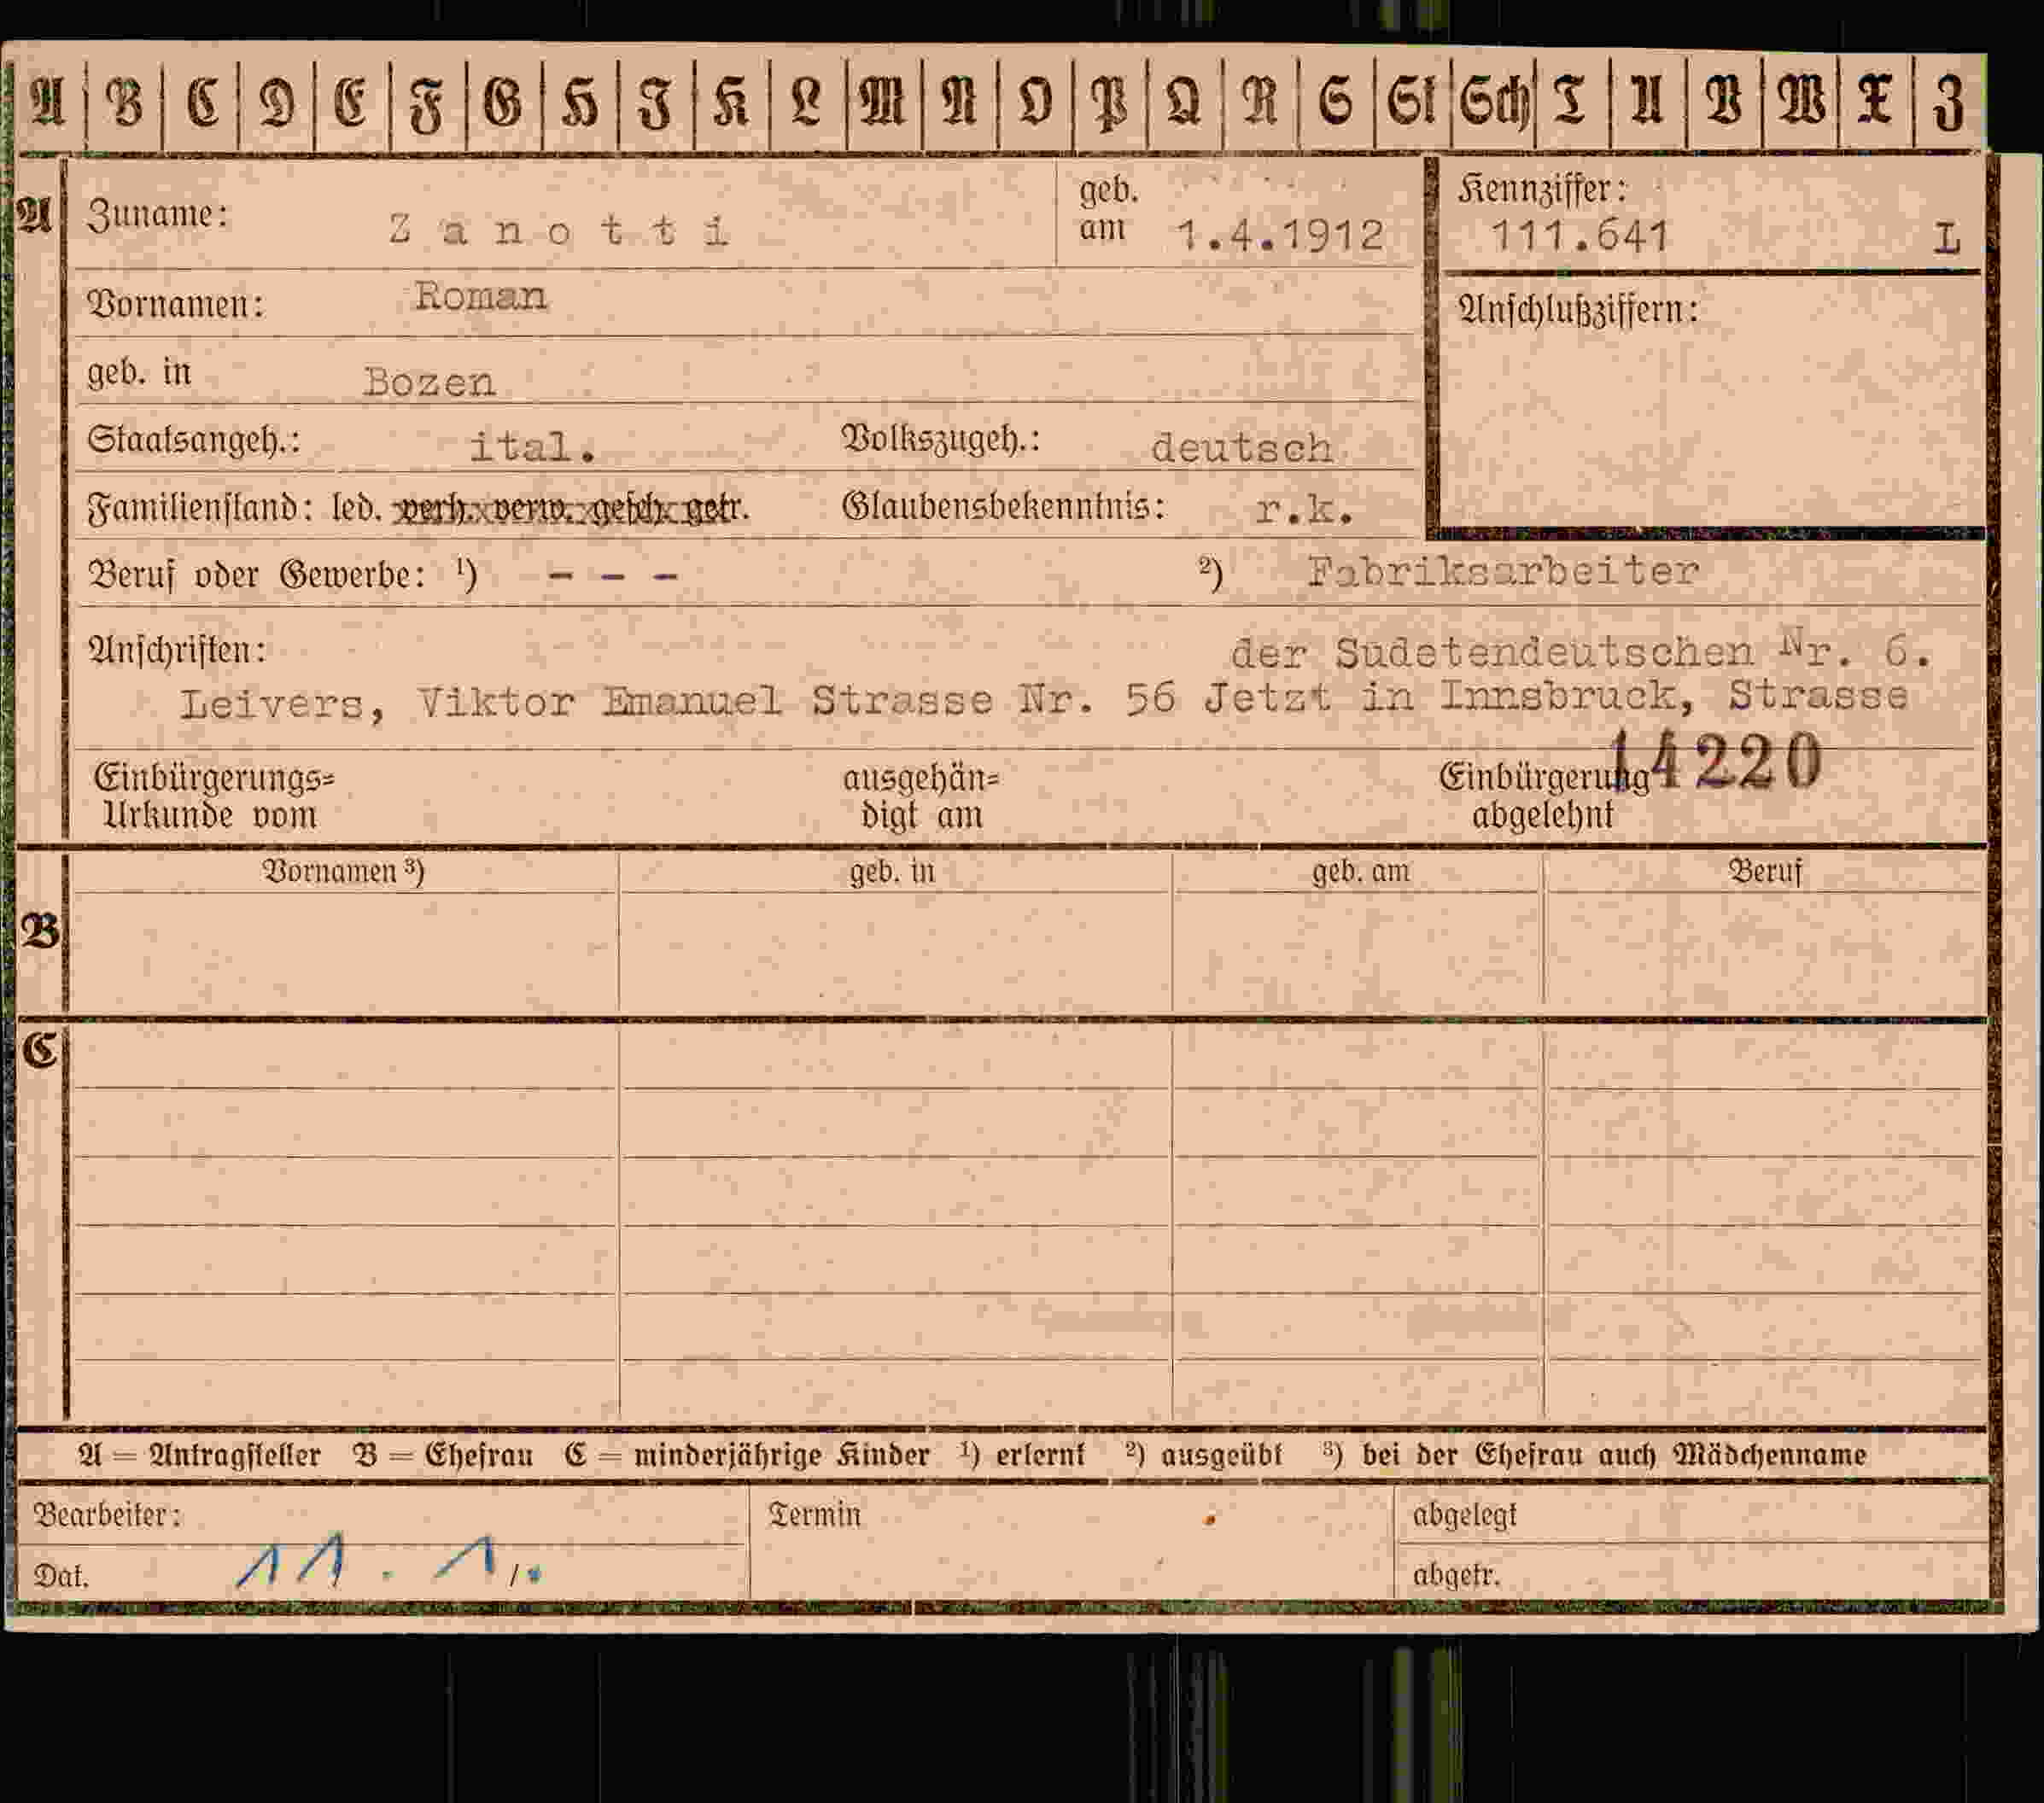 A B C D E F G H J K L M N O P Q R S St Sch T U V W X Z
A Zuname: Zanotti geb. am 1.4.1912 Kennziffer: 111.641 L
Vornamen: Roman Anschlußziffern:
geb. in Bozen
Staatsangeh.: ital. Volkszugeh.: deutsch
Familienstand: led. verh. verw. gesch. getr. Glaubensbekenntnis: r.k.
Beruf oder Gewerbe: ¹) - - - ²) Fabriksarbeiter
Anschriften: der Sudetendeutschen Nr. 6.
Leivers, Viktor Emanuel Strasse Nr. 56 Jetzt in Innsbruck, Strasse
14220
Einbürgerungs= ausgehän= Einbürgerung
Urkunde vom digt am abgelehnt
Vornamen ³) geb. in geb. am Beruf
B
C
A = Antragsteller B = Ehefrau C = minderjährige Kinder ¹) erlernt ²) ausgeübt ³) bei der Ehefrau auch Mädchenname
Bearbeiter: Termin abgelegt
Dat. 11. 1. abgetr.